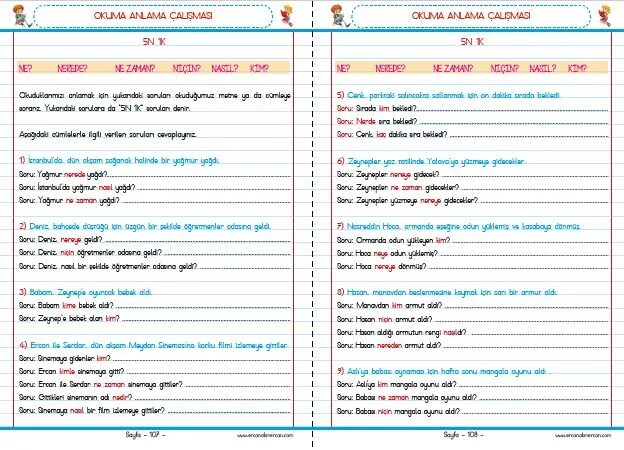 OKUMA ANLAMA ÇALIŞMASI
5N 1K
NE? NEREDE? NE ZAMAN? NİÇİN? NASIL? KİM?
Okuduklarımızı anlamak için yukarıdaki soruları okuduğumuz metne ya da cümleye
sorarız. Yukarıdaki sorulara da "5N 1K" soruları denir.
Aşağıdaki cümlelerle ilgili verilen soruları cevaplayınız.
1) İstanbul'da, dün akşam sağanak halinde bir yağmur yağdı.
Soru: Yağmur nerede yağdı?
Soru: İstanbul'da yağmur nasıl yağdı?
Soru: Yağmur ne zaman yağdı?
2) Deniz, bahçede düştüğü için üzgün bir şekilde öğretmenler odasına geldi.
Soru: Deniz, nereye geldi?
Soru: Deniz, niçin öğretmenler odasına geldi?
Soru: Deniz, nasıl bir şekilde öğretmenler odasına geldi?
3) Babam, Zeynep'e oyuncak bebek aldı.
Soru: Babam kime bebek aldı?
Soru: Zeynep'e bebek alan kim?
4) Ercan ile Serdar, dün akşam Meydan Sineması'na korku filmi izlemeye gittiler.
Soru: Sinemaya gidenler kim?
Soru: Ercan kimle sinemaya gitti?
Soru: Ercan ile Serdar ne zaman sinemaya gittiler?
Soru: Gittikleri sinemanın adı nedir?
Soru: Sinemaya nasıl bir film izlemeye gittiler?
Sayfa - 107 -
www.ercanakmercan.com
OKUMA ANLAMA ÇALIŞMASI
5N 1K
NE? NEREDE? NE ZAMAN? NİÇİN? NASIL? KİM?
5) Cenk, parktaki salıncakta sallanmak için on dakika sırada bekledi.
Soru: Sırada kim bekledi?
Soru: Nerde sıra bekledi?
Soru: Cenk, kaç dakika sıra bekledi?
6) Zeynepler yaz tatilinde Yalova'ya yüzmeye gidecekler.
Soru: Zeynepler nereye gidecek?
Soru: Zeynepler ne zaman gidecekler?
Soru: Zeynepler yüzmeye nereye gidecekler?
7) Nasreddin Hoca, ormanda eşeğine odun yüklemiş ve kasabaya dönmüş.
Soru: Ormanda odun yükleyen kim?
Soru: Hoca neye odun yüklemiş?
Soru: Hoca nereye dönmüş?
8) Hasan, manavdan beslenmesine koymak için sarı bir armut aldı.
Soru: Manavdan kim armut aldı?
Soru: Hasan niçin armut aldı?
Soru: Hasan aldığı armutun rengi nasıldı?
Soru: Hasan nereden armut aldı?
9) Aslı'ya babası oynaması için hafta sonu mangala oyunu aldı .
Soru: Aslı'ya kim mangala oyunu aldı?
Soru: Babası ne zaman mangala oyunu aldı?
Soru: Babası niçin mangala oyunu aldı?
Sayfa - 108 -